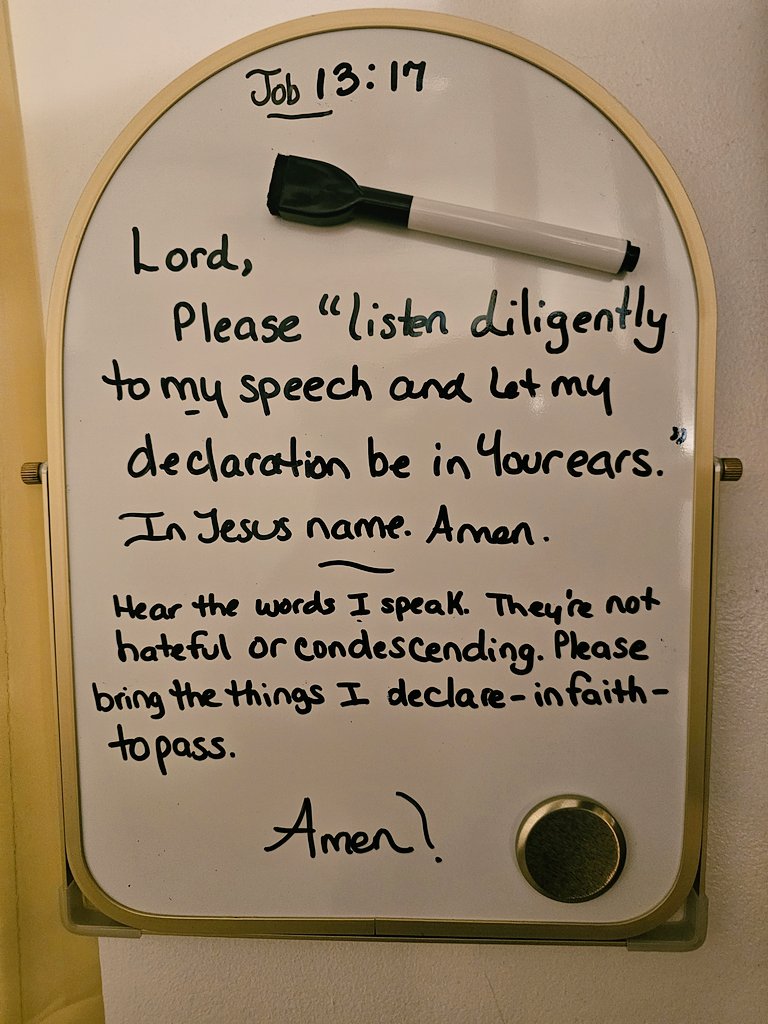 Job 13:17
Lord,
Please "listen diligently
to my speech and let my
declaration be in Your ears."
In Jesus name. Amen.
Hear the words I speak. They're not
hateful or condescending. Please
bring the things I declare-in faith-
to pass.
Amen!